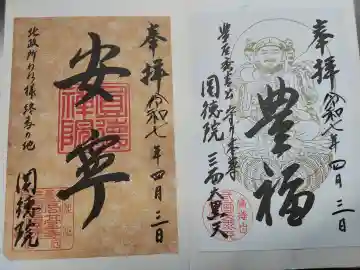 奉拝
令和七年四月三日
安寧
北政所ねね様 終焉の地
圓徳院
奉拝
令和七年四月三日
豊福
圓徳院
三面大黒天